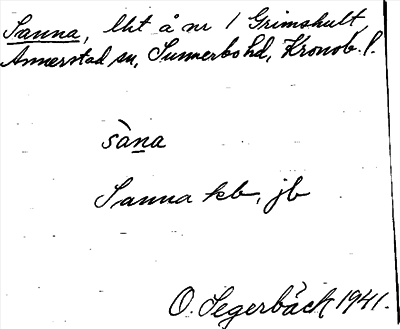 Sanna, lht å nr 1 Grimshult
Annerstad sn, Sunnerbo hd, Kronob. l.
sàna
Sanna kb, jb
O. Segerbäck 1941.